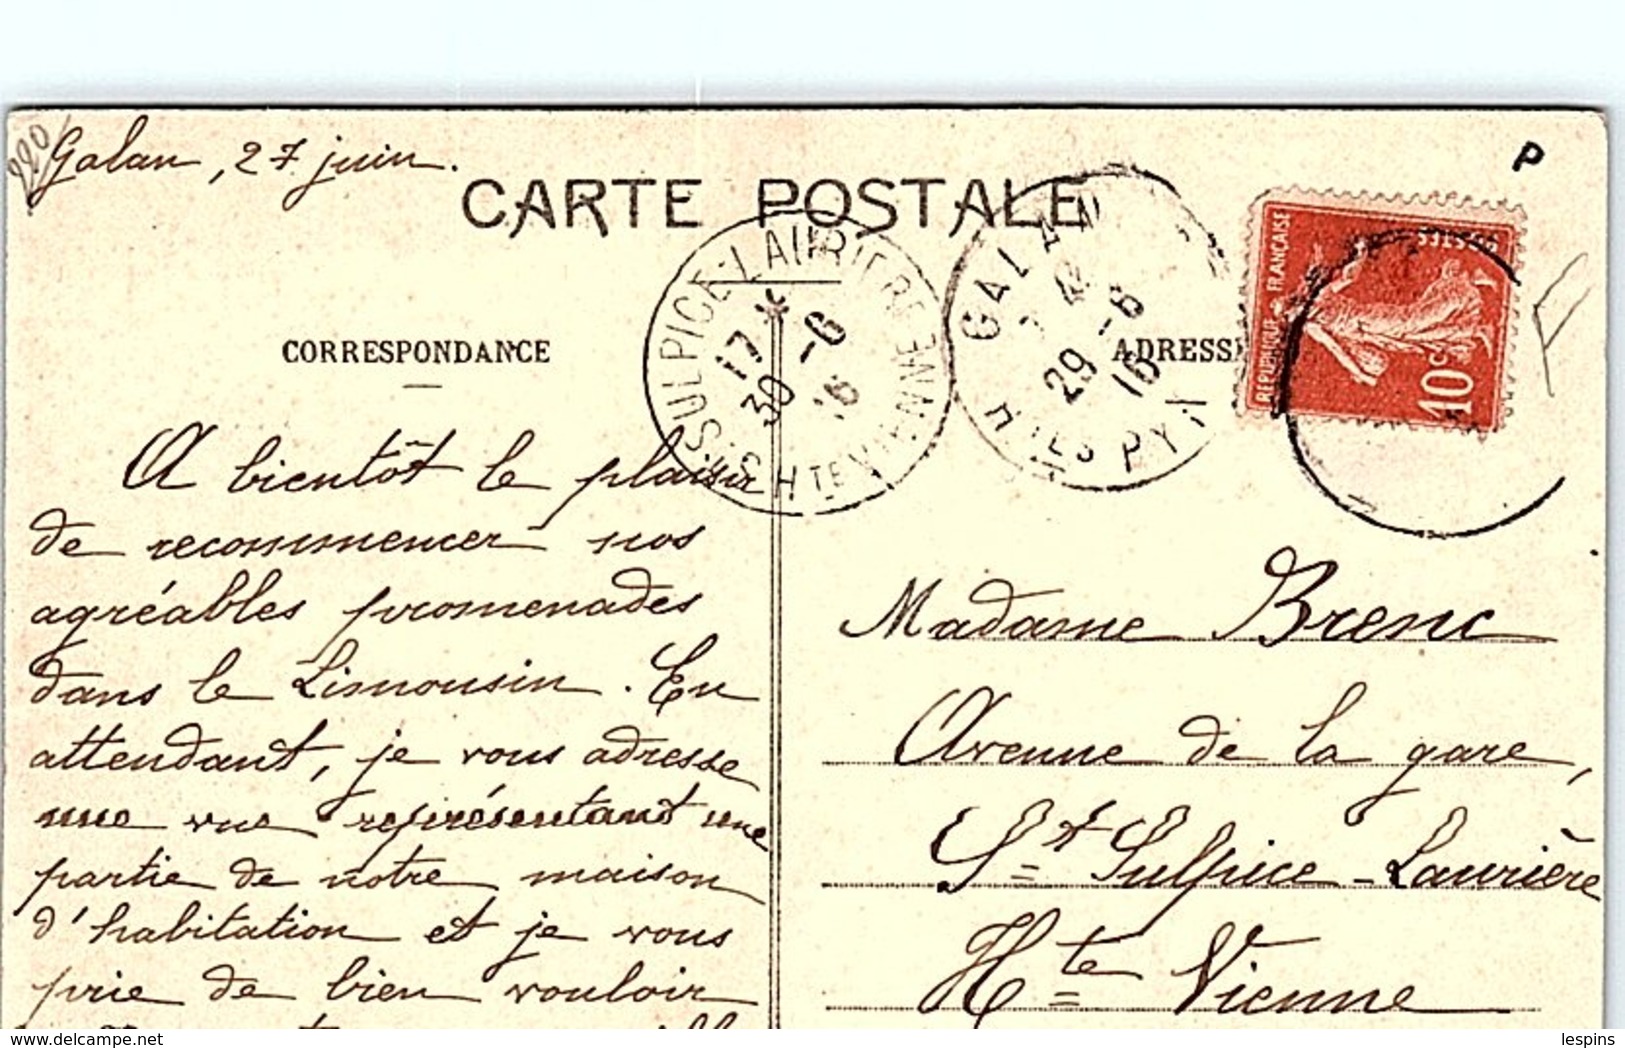 220
Galan, 27 juin.
P
CARTE POSTALE
CORRESPONDANCE
ADRESSE
ST SULPICE-LAURIERE HTE VIENNE
17 * 30 -6 16
GALAN HTES PYR
29 -6 16
REPUBLIQUE FRANÇAISE
POSTES
10 c
A bientôt le plaisir
de recommencer nos
agréables promenades
dans le Limousin. En
attendant, je vous adresse
une vue représentant une
partie de notre maison
d'habitation et je vous
prie de bien vouloir
Madame Brenc
Avenue de la gare,
St Sulpice-Laurière
Hte Vienne
Delcampe.net
lespins